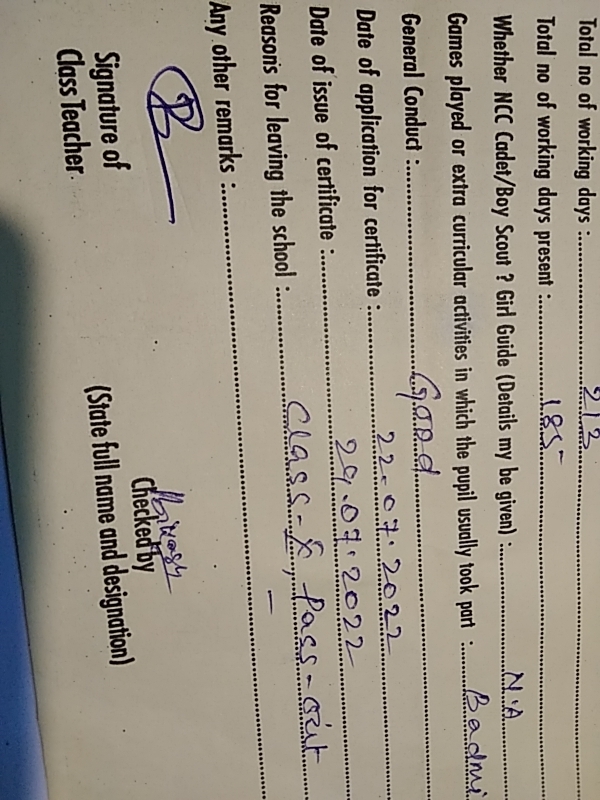 Total no of working days : 212
Total no of working days present : 185
Whether NCC Cadet/Boy Scout ? Girl Guide (Details my be given) : N.A
Games played or extra curricular activities in which the pupil usually took part : Badmi
General Conduct : Good
Date of application for certificate : 22.07.2022
Date of issue of certificate : 29.07.2022
Reasons for leaving the school : Class-X, Pass-out
Any other remarks : –
Signature of
Class Teacher
Checked by
(State full name and designation)